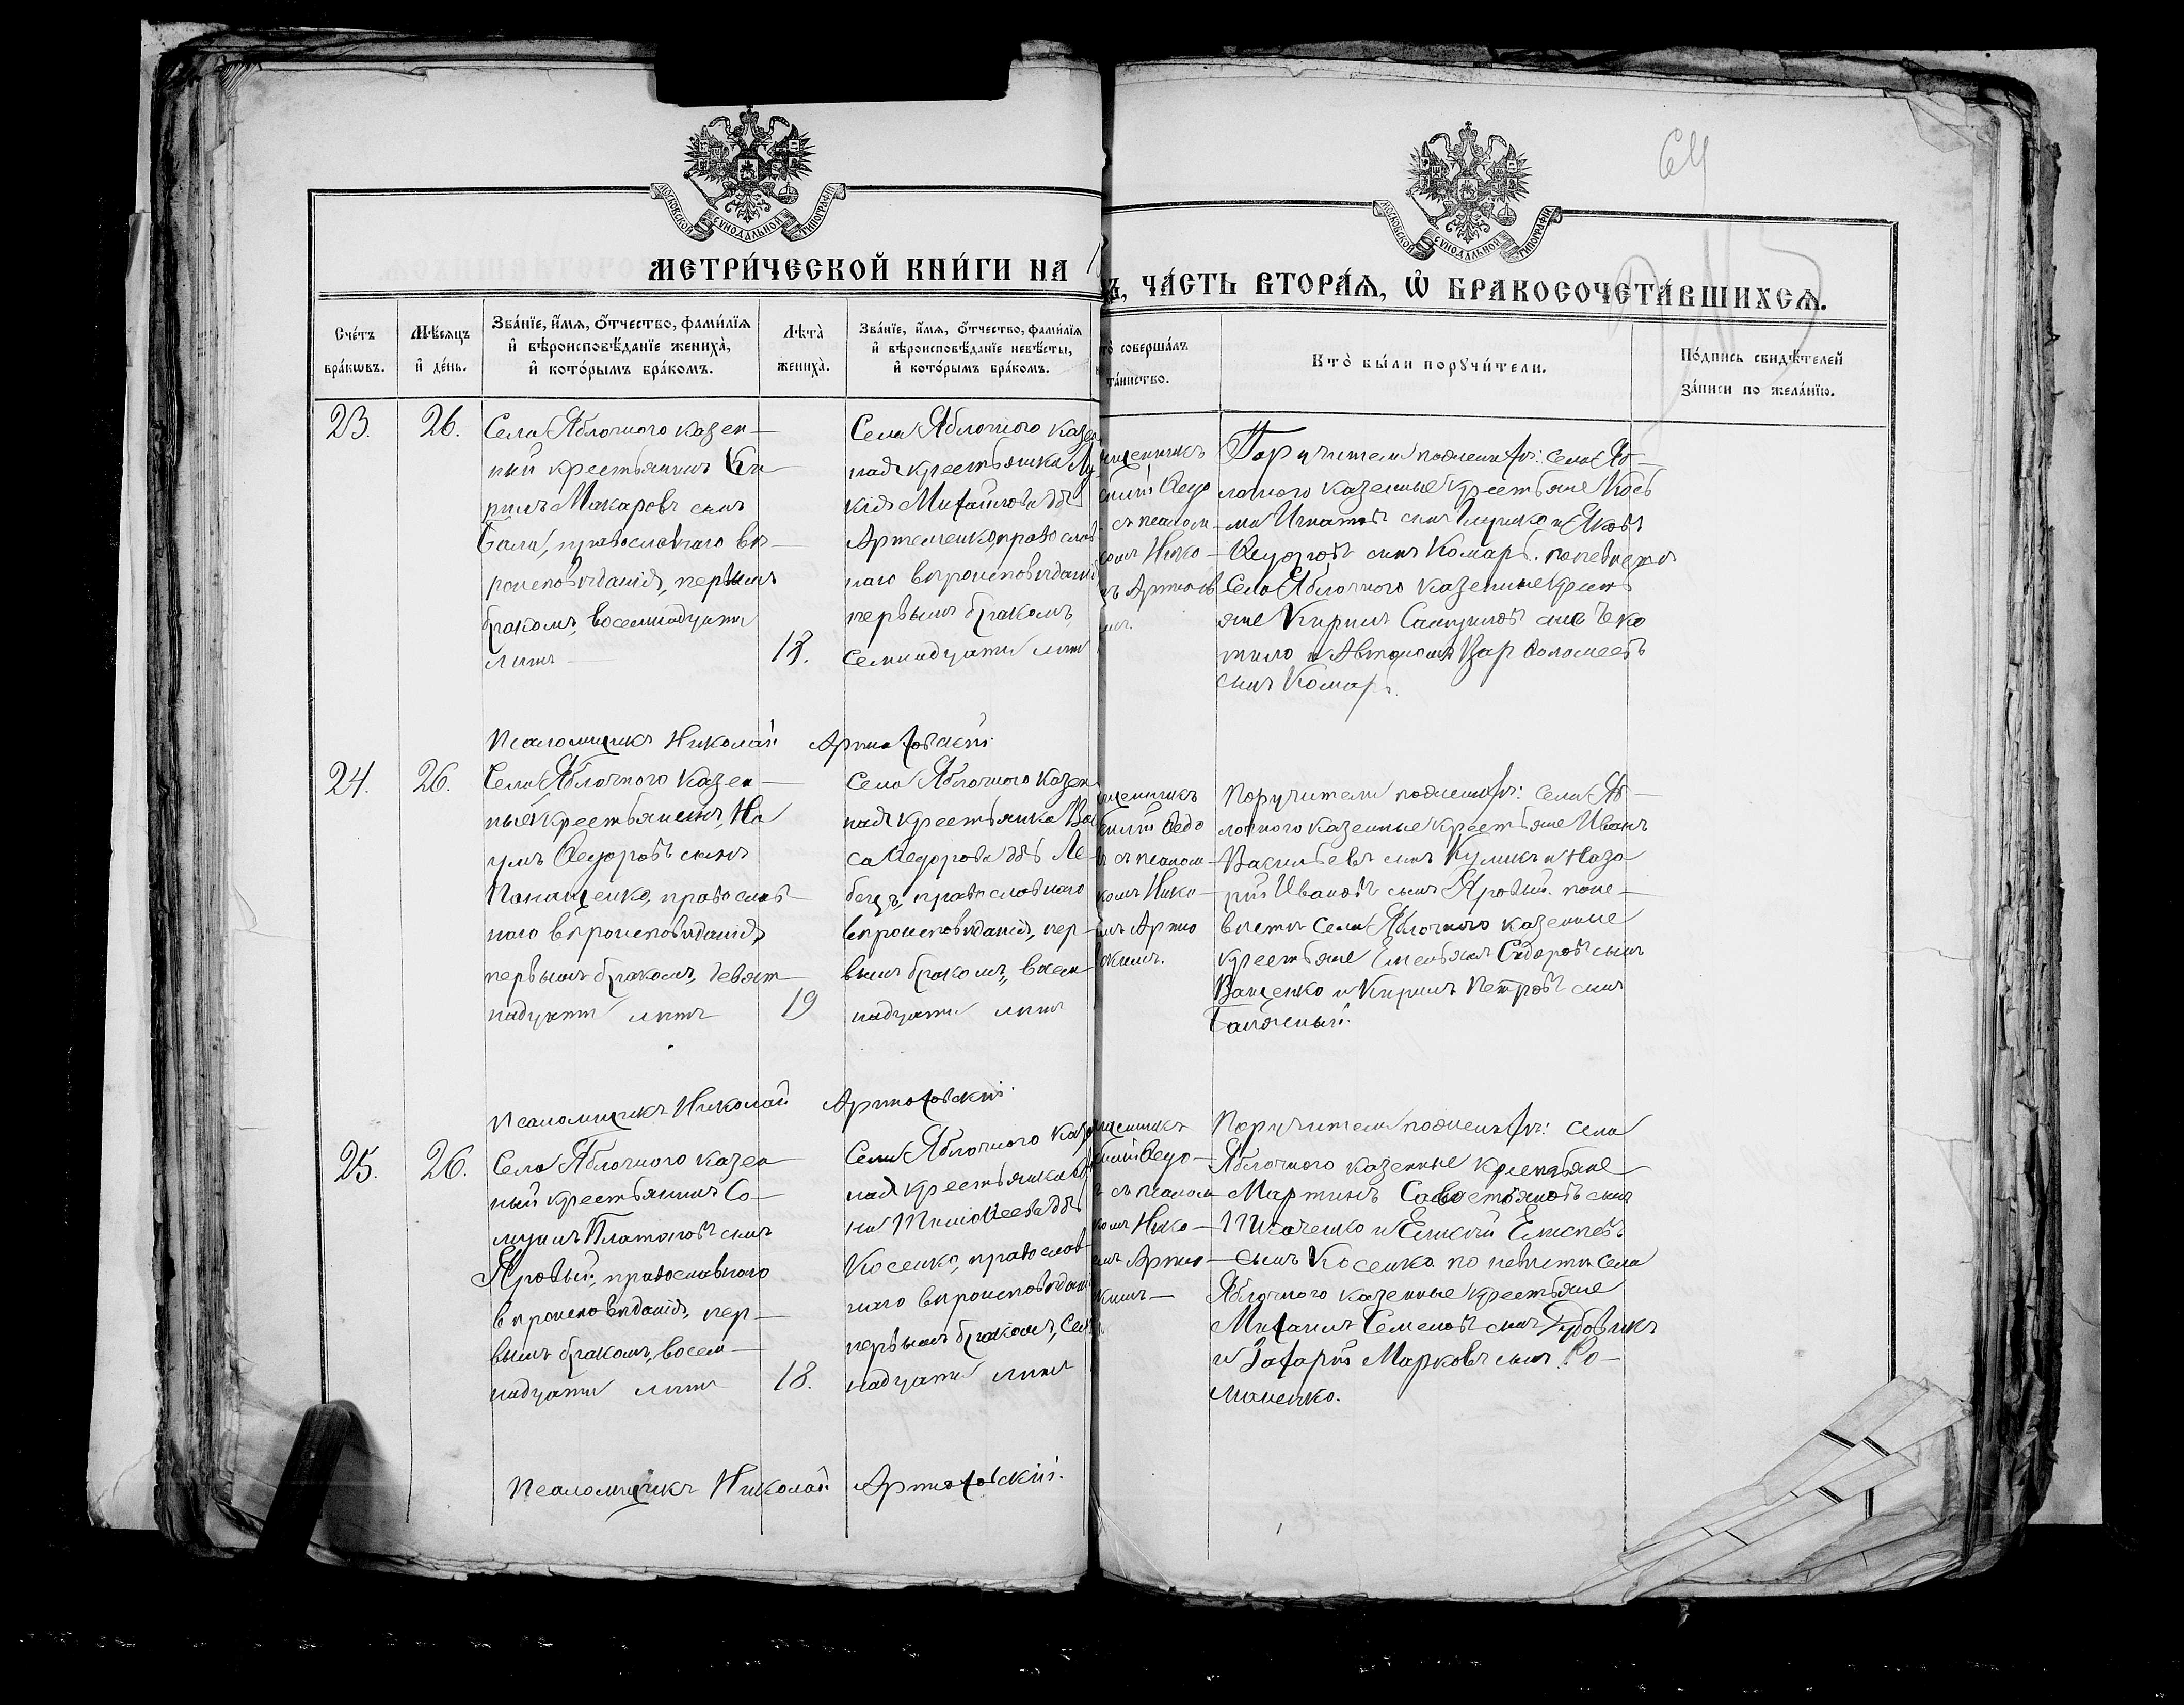 64
МОСКОВСКОЙ СѴНОДАЛЬНОЙ ТИПОГРАФІИ
МОСКОВСКОЙ СѴНОДАЛЬНОЙ ТИПОГРАФІИ
МЕТРИ́ЧЕСКОЙ КНИ́ГИ НА 1
Ъ, ЧА́СТЬ ВТОРА́Я, Ѡ БРАКОСОЧЕТА́ВШИХСЯ.
Сче́тъ
бра́кѡвъ.
Мѣ́сяцъ
и҆ де́нь.
Зва́нїе, и҆́мя, ѻ҆́тчество, фами́лїя
и҆ вѣроисповѣ́данїе жениха̀,
и҆ кото́рымъ бра́комъ.
Лѣта̀
жениха̀.
Зва́нїе, и҆́мя, ѻ҆́тчество, фами́лїя
и҆ вѣроисповѣ́данїе невѣ́сты,
и҆ кото́рымъ бра́комъ.
то̀ соверша́лъ
та́инство.
Кто̀ бы́ли порꙋчи́тели.
По́дпись свидѣ́телей
за́писи по жела́нїю.
23.
26.
Села Яблочного казен—
ный крестьянинъ Ки—
рилъ Макаровъ сынъ
Бала, православнаго вѣ—
роисповѣданія, первымъ
бракомъ, восемнадцати
лѣтъ
18.
Села Яблочного казен
ная крестьянка Лу-
кія Михайлова дчь
Артеменко, православ
наго вѣроисповѣданія
первымъ бракомъ,
семнадцати лѣтъ
щенникъ
силій Ѳедо
съ псалом—
комъ Нико—
Поручители по женихѣ: села Яб—
лочного казенные крестьяне Козь
ма Игнатовъ сынъ и Яковъ
Ѳедоровъ сынъ Комаръ. по невѣстѣ
Села Яблочного казенные кресть
яне Кирилъ Самуиловъ сынъ
и Автономъ Варѳоломеевъ
сынъ Комаръ.
Псаломщикъ Николай Артюховскій
24.
26.
Села Яблочного казен—
ный крестьянинъ, На
умъ Ѳедоровъ сынъ
Панащенко, православ—
наго вѣроисповѣданія,
первымъ бракомъ, девят—
надцати лѣтъ
19
Села Яблочного казен
ная крестьянка Ва
са Ѳедорова дчь Ле—
бедь, православнаго
вѣроисповѣданія, пер—
вымъ бракомъ, восем
надцати лѣтъ
щенникъ
силій Ѳедо
ъ съ псалом—
комъ Нико—
мъ Артю
Поручители по женихѣ: села Яб—
лочного казенные крестьяне Иванъ
Васильевъ сынъ Куликъ и Наза
рій Ивановъ сынъ Яровый. по не—
вѣстѣ села Яблочного казенные
крестьяне Емельянъ Сидоровъ сынъ
Ващенко и Кирилъ Петровъ сынъ
Псаломщикъ Николай Артюховскій.
25.
26.
Села Яблочного казен—
ный крестьянинъ Са—
муилъ Платоновъ сынъ
Яровый, православнаго
вѣроисповѣданія, пер—
вымъ бракомъ, восем—
надцати лѣтъ
18.
Села Яблочного казен
ная крестьянка
на Тимоѳеева дчь
Косенко, православ
наго вѣроисповѣдан
первымъ бракомъ, сем
надцати лѣтъ
щенникъ
силій Ѳедо—
ъ съ псалом
комъ Нико—
мъ Артю—
кимъ—
Поручители по женихѣ: села
Яблочного казенные крестьяне
Мартинъ Савостьяновъ сынъ
Ткаченко и
сынъ Косенко по невѣстѣ села
Яблочного казенные крестьяне
Михаилъ Семеновъ сынъ Дудовикъ
и Захарій Марковъ сынъ Ро—
маненко.
Псаломщикъ Николай Артюховскій.